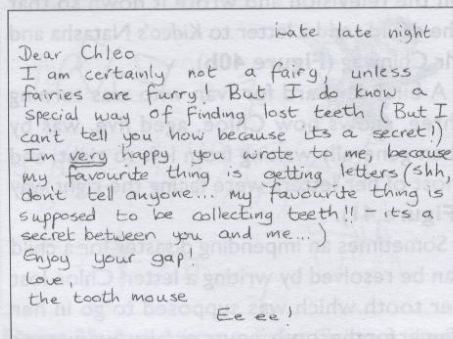 Late late night
Dear Chleo
I am certainly not a fairy, unless
fairies are furry! But I do know a
special way of finding lost teeth (But I
can't tell you how because its a secret!)
Im very happy you wrote to me, because
my favourite thing is getting letters (shh,
don't tell anyone... my favourite thing is
supposed to be collecting teeth!! - its a
secret between you and me...)
Enjoy your gap!
Love
the tooth mouse
Ee ee!